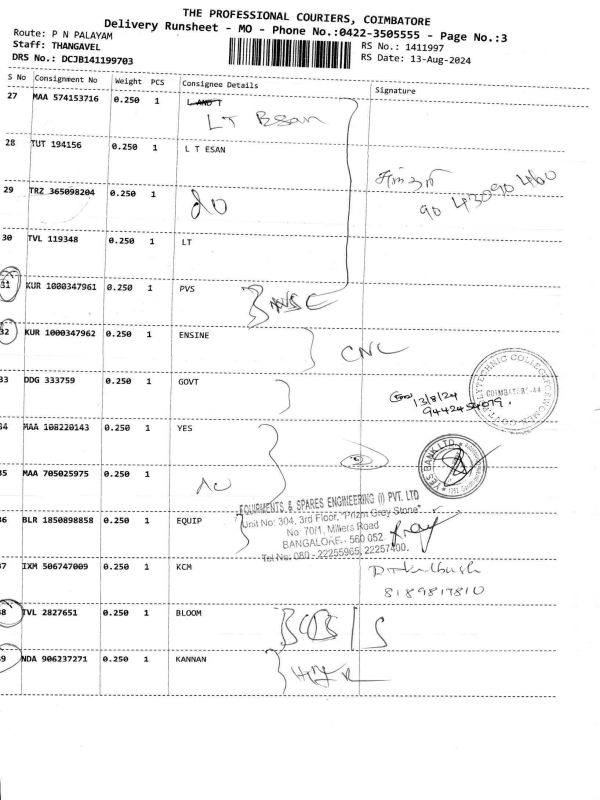 THE PROFESSIONAL COURIERS, COIMBATORE
Delivery Runsheet - MO - Phone No.:0422-3505555 - Page No.:3
Route: P N PALAYAM
Staff: THANGAVEL
RS No.: 1411997
DRS No.: DCJB141199703
RS Date: 13-Aug-2024
S No Consignment No Weight PCS Consignee Details Signature
27 MAA 574153716 0.250 1 L AND T
LT Esan
28 TUT 194156 0.250 1 L T ESAN
29 TRZ 365098204 0.250 1 do
90 43090 460
30 TVL 119348 0.250 1 LT
31 KUR 1000347961 0.250 1 PVS
32 KUR 1000347962 0.250 1 ENSINE
CNC
33 DDG 333759 0.250 1 GOVT
13/8/24
POLYTECHNIC COLLEGE
COIMBATORE-44
34 MAA 108220143 0.250 1 YES
YES BANK LTD.
35 MAA 705025975 0.250 1
EQUIPMENTS & SPARES ENGINEERING (I) PVT. LTD
Unit No: 304, 3rd Floor, "Prizm Grey Stone"
No. 70/1, Millers Road
BANGALORE - 560 052
Tel No: 080 - 22255965, 22257400.
36 BLR 1850898858 0.250 1 EQUIP
37 IXM 506747009 0.250 1 KCM
8189817810
38 TVL 2827651 0.250 1 BLOOM
39 NDA 906237271 0.250 1 KANNAN